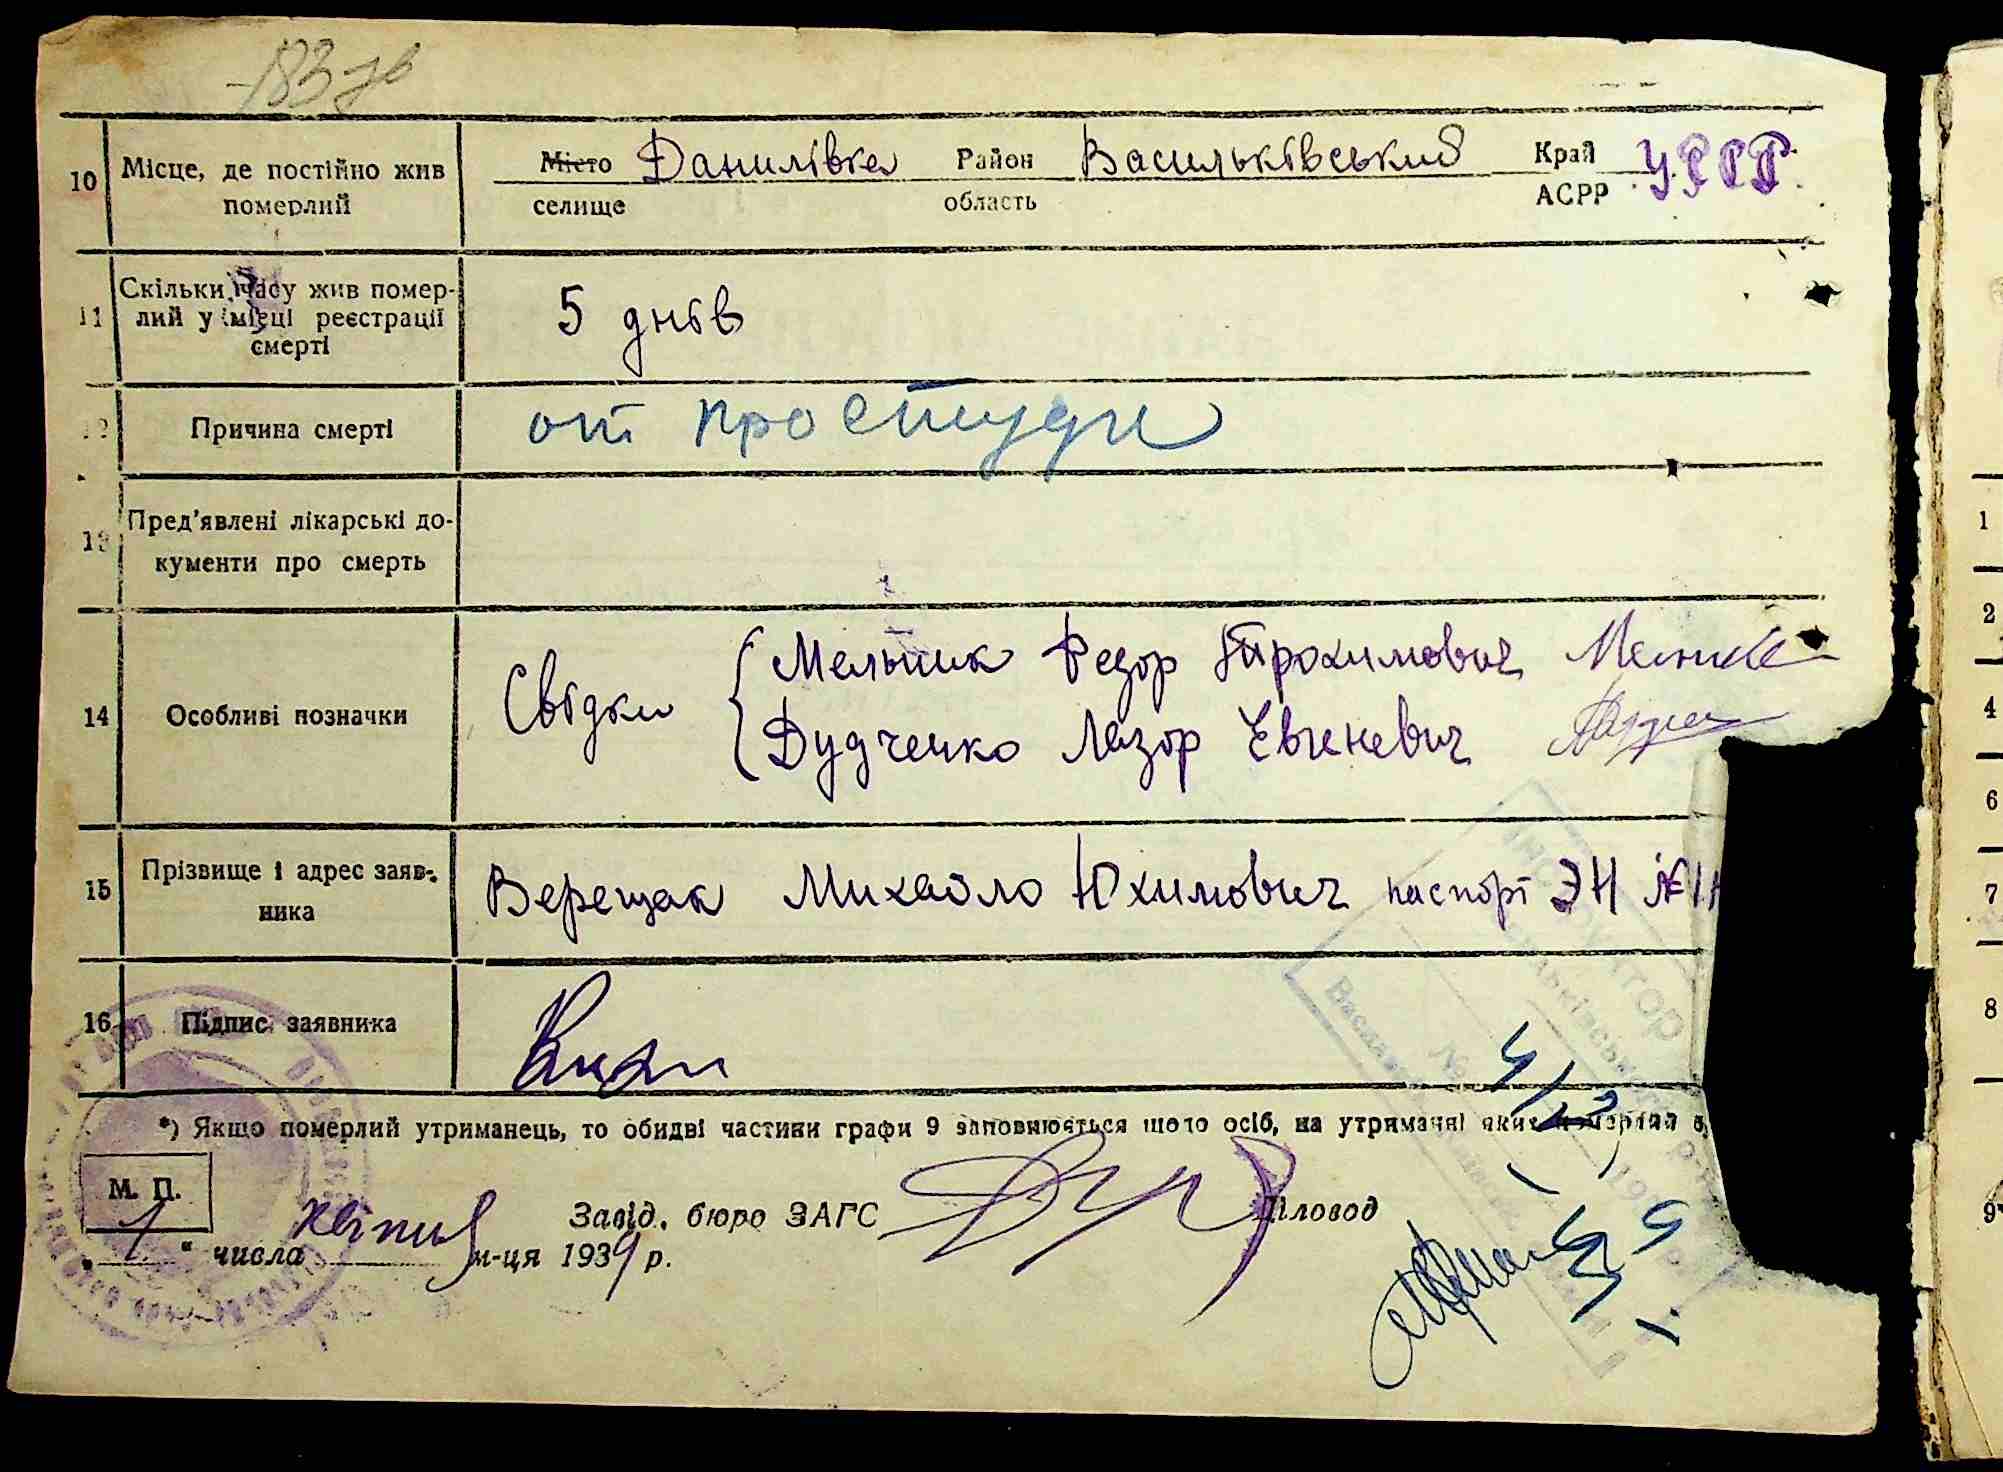 183 зв
10 Місце, де постійно жив померлий
Місто Данилівка Район Васильківський Край УРСР
селище область АСРР
11 Скільки часу жив помер-
лий у місці реєстрації
смерті
5 днів
12 Причина смерті от простуди
13 Пред'явлені лікарські до-
кументи про смерть
14 Особливі позначки
Свідки { Мельник Федор Трохимович
Дудченко Лазор Євгеневич
15 Прізвище і адрес заяв-
ника
Верещак Михайло Юхимович паспорт ЭН №
16 Підпис заявника
*) Якщо померлий утриманець, то обидві частини графи 9 заповнюється щото осіб, на утриманні яких померлий
М. П.
Завід. бюро ЗАГС Діловод
„ 1 “ числа квітня м-ця 1939 р.
1
2
4
6
7
8
9